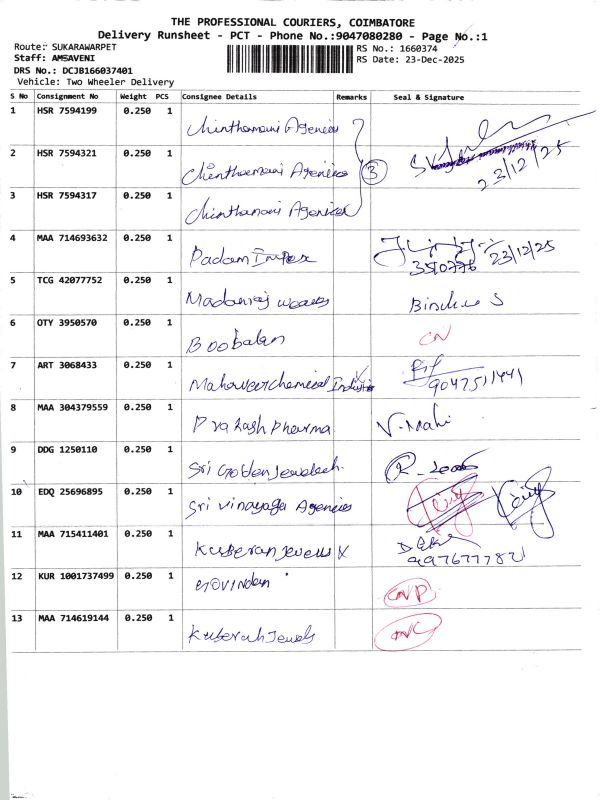 THE PROFESSIONAL COURIERS, COIMBATORE
Delivery Runsheet - PCT - Phone No.:9047080280 - Page No.:1
Route: SUKARAWARPET
RS No.: 1660374
Staff: AMSAVENI
RS Date: 23-Dec-2025
DRS No.: DCJB166037401
Vehicle: Two Wheeler Delivery
S No Consignment No Weight PCS Consignee Details Remarks Seal & Signature
1 HSR 7594199 0.250 1 Chinthamani Agencies
2 HSR 7594321 0.250 1 Chinthamani Agencies 3 23/12/25
3 HSR 7594317 0.250 1 Chinthamani Agencies
4 MAA 714693632 0.250 1 Padam Impex 23/12/25
3510776
5 TCG 42077752 0.250 1 Madanraj
6 OTY 3950570 0.250 1 Boobalan CN
7 ART 3068433 0.250 1 Mahaveer Chemical
8 MAA 304379559 0.250 1 Prakash Pharma V. Mahi
9 DDG 1250110 0.250 1 Sri Golden
10 EDQ 25696895 0.250 1 Sri Vinayaga Agencies
11 MAA 715411401 0.250 1 Kuberan Jewells X
12 KUR 1001737499 0.250 1 Govindan
13 MAA 714619144 0.250 1 Kuberan Jewels